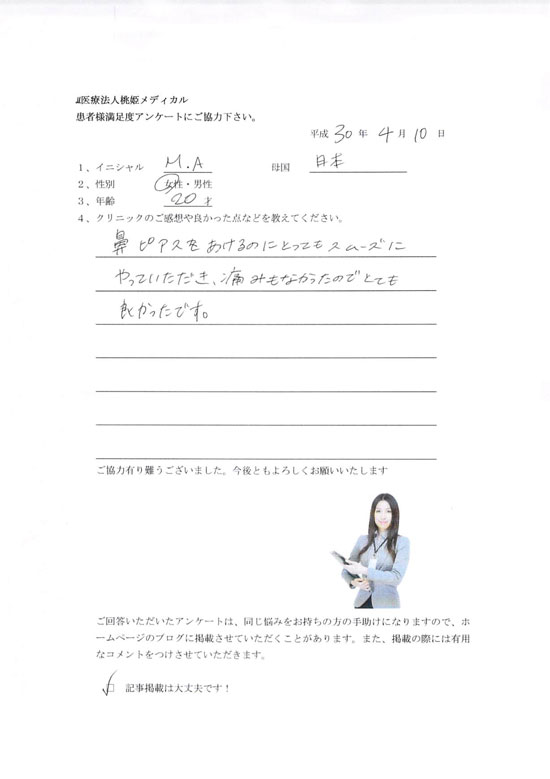 医療法人桃姫メディカル
患者様満足度アンケートにご協力下さい。
平成 30 年 4 月 10 日
1、イニシャル M.A 母国 日本
2、性別 女性・男性
3、年齢 20才
4、クリニックのご感想や良かった点などを教えてください。
鼻ピアスをあけるのにとってもスムーズに
やっていただき、痛みもなかったのでとても
良かったです。
ご協力有り難うございました。今後ともよろしくお願いいたします
ご回答いただいたアンケートは、同じ悩みをお持ちの方の手助けになりますので、ホ
ームページのブログに掲載させていただくことがあります。また、掲載の際には有用
なコメントをつけさせていただきます。
記事掲載は大丈夫です！